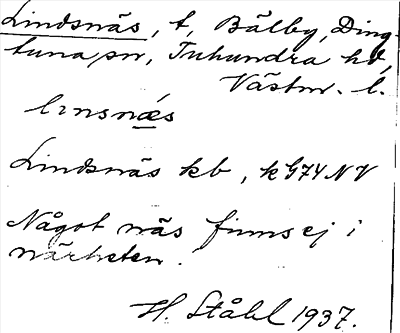 Lindsnäs, t, Bälby, Ding-
tuna sn, Tuhundra hd,
Västm. l.
linsnæ̀s
Lindsnäs kb, k G74 NV
Något näs finns ej i
närheten.
H. Ståhl 1937.